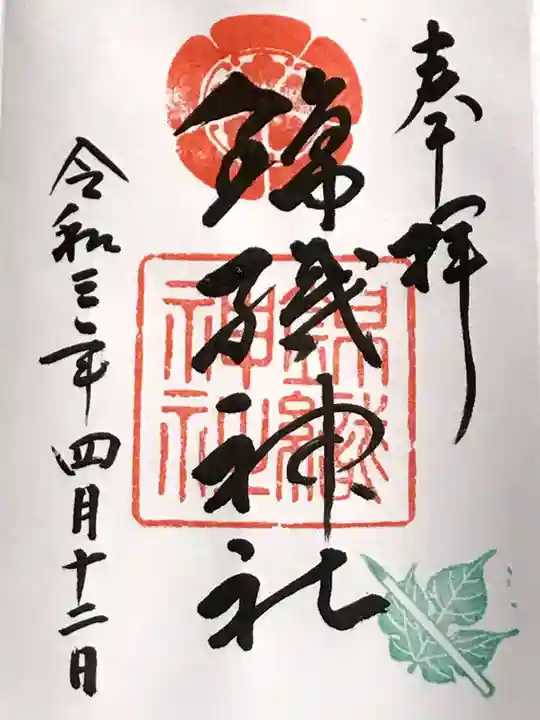 奉拝
錦織神社
令和三年四月十二日
錦織
神社